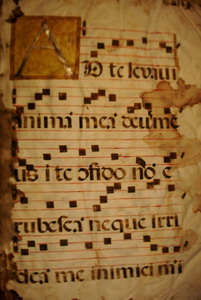 AD te levavi
anima mea deus me
us i te cōfido nō e
rubescā neque irri
deāt me inimici mi